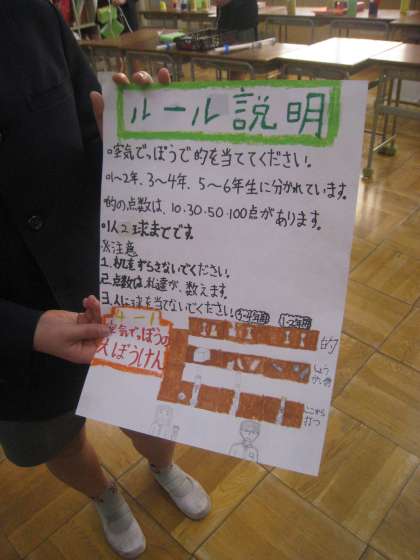 ルール説明
○空気でっぽうで的を当ててください。
○1〜2年、3〜4年、5〜6年生に分かれています。
・的の点数は、10・30・50・100点があります。
○1人2球までです。
※注意
1.机をずらさないでください。
2.点数は私達が、数えます。
3.人に球を当てないでください。
3〜4年用
1〜2年用
4-1
空気でっぽうの
えぼうけん
的
しょうがい物
ここから打つ